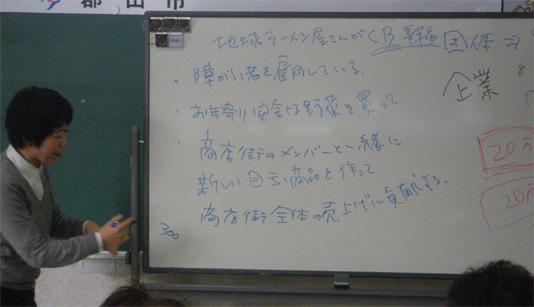 郡山市
地球ラーメン屋さんがCB事業者団体⇒
・障がい者を雇用している。
企業
・お年寄り 安全な野菜を買って
・商店街のメンバーと一緒に
新しい目玉商品を作って
商店街全体の売上げに貢献する。
20万
20万